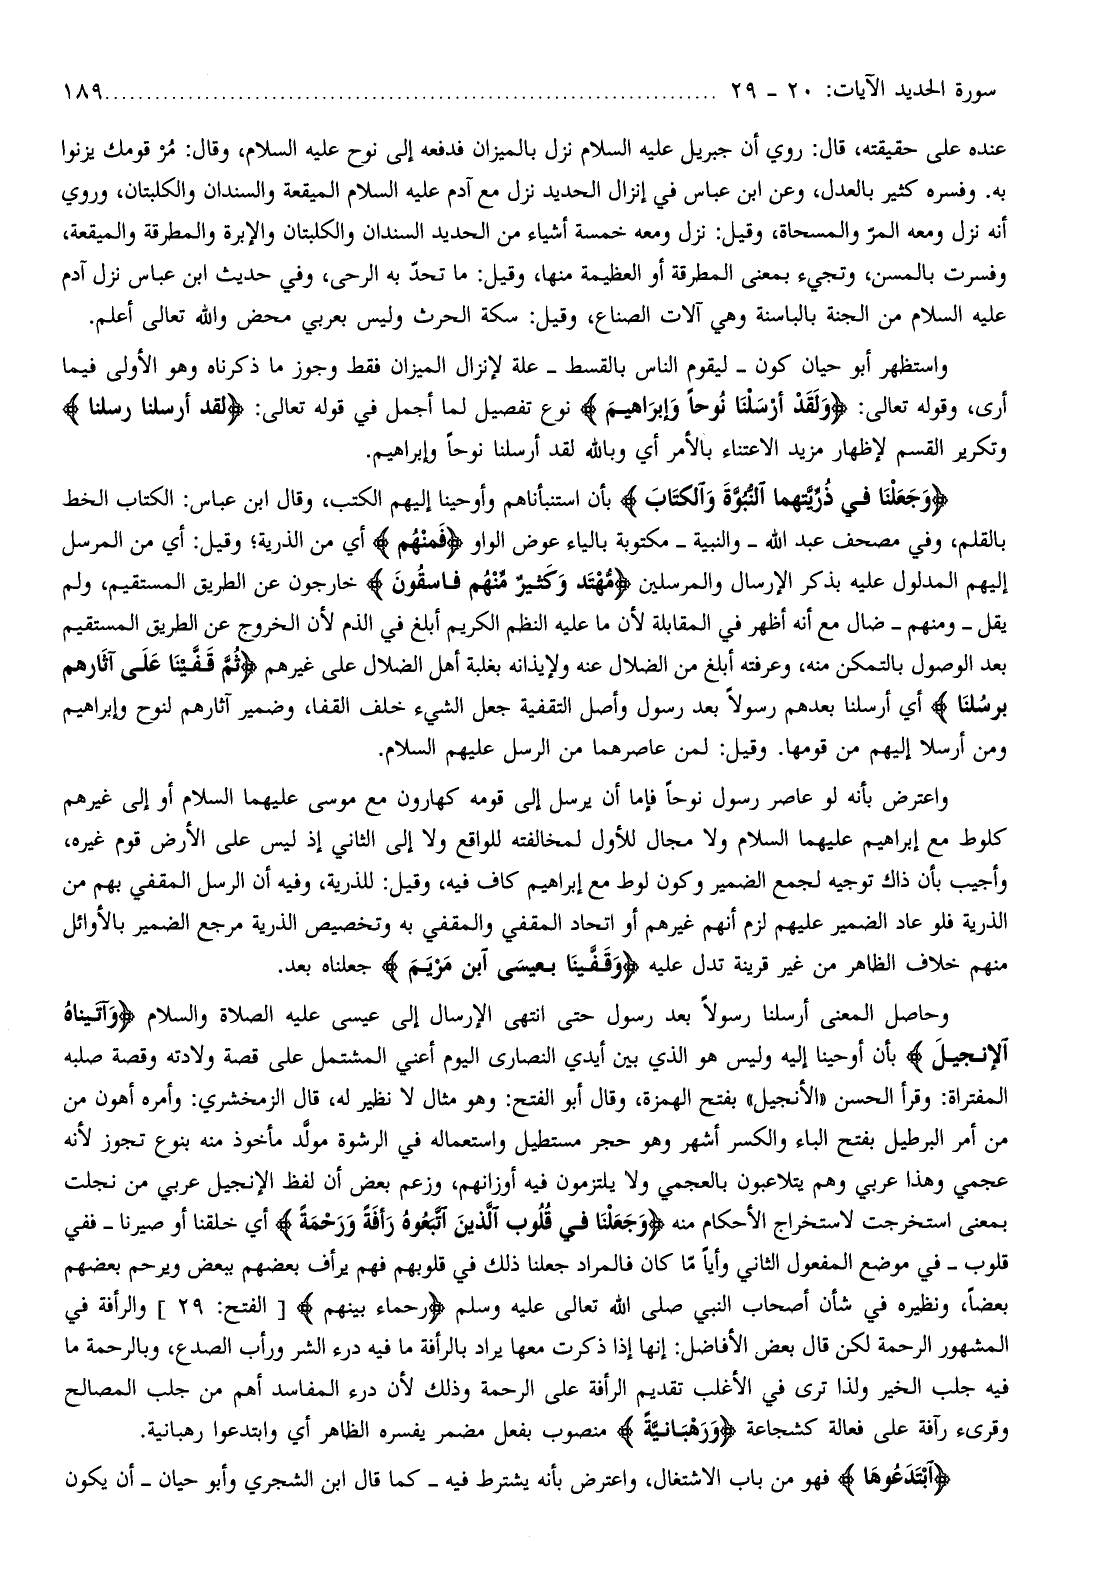 سورة الحديد الآيات: ٢٠ ــ ٢٩ ........................................................................ ١٨٩
عنده على حقيقته، قال: روي أن جبريل عليه السلام نزل بالميزان فدفعه إلى نوح عليه السلام، وقال: مُرْ قومك يزنوا
به. وفسره كثير بالعدل، وعن ابن عباس في إنزال الحديد نزل مع آدم عليه السلام الميقعة والسندان والكلبتان، وروي
أنه نزل ومعه المرّ والمسحاة، وقيل: نزل ومعه خمسة أشياء من الحديد السندان والكلبتان والإبرة والمطرقة والميقعة،
وفسرت بالمسن، وتجيء بمعنى المطرقة أو العظيمة منها، وقيل: ما تحدّ به الرحى، وفي حديث ابن عباس نزل آدم
عليه السلام من الجنة بالباسنة وهي آلات الصناع، وقيل: سكة الحرث وليس بعربي محض والله تعالى أعلم.
واستظهر أبو حيان كون ــ ليقوم الناس بالقسط ــ علة لإنزال الميزان فقط وجوز ما ذكرناه وهو الأولى فيما
أرى، وقوله تعالى: ﴿وَلَقَدْ أَرْسَلْنَا نُوحاً وَإبرَاهيمَ﴾ نوع تفصيل لما أجمل في قوله تعالى: ﴿لقد أرسلنا رسلنا﴾
وتكرير القسم لإظهار مزيد الاعتناء بالأمر أي وبالله لقد أرسلنا نوحاً وإبراهيم.
﴿وَجَعَلْنَا في ذُرِّيَّتهما ٱلنُّبُوَّةَ وَٱلكتَابَ﴾ بأن استنبأناهم وأوحينا إليهم الكتب، وقال ابن عباس: الكتاب الخط
بالقلم، وفي مصحف عبد الله ــ والنبية ــ مكتوبة بالياء عوض الواو ﴿فَمنْهُم﴾ أي من الذرية؛ وقيل: أي من المرسل
إليهم المدلول عليه بذكر الإرسال والمرسلين ﴿مُّهْتَد وَكَثيرٌ مِّنْهُم فَاسقُونَ﴾ خارجون عن الطريق المستقيم، ولم
يقل ــ ومنهم ــ ضال مع أنه أظهر في المقابلة لأن ما عليه النظم الكريم أبلغ في الذم لأن الخروج عن الطريق المستقيم
بعد الوصول بالتمكن منه، وعرفته أبلغ من الضلال عنه ولإيذانه بغلبة أهل الضلال على غيرهم ﴿ثُمَّ قَفَّيْنَا عَلَى آثَارهم
برسُلنَا﴾ أي أرسلنا بعدهم رسولاً بعد رسول وأصل التقفية جعل الشيء خلف القفا، وضمير آثارهم لنوح وإبراهيم
ومن أرسلا إليهم من قومها. وقيل: لمن عاصرهما من الرسل عليهم السلام.
واعترض بأنه لو عاصر رسول نوحاً فإما أن يرسل إلى قومه كهارون مع موسى عليهما السلام أو إلى غيرهم
كلوط مع إبراهيم عليهما السلام ولا مجال للأول لمخالفته للواقع ولا إلى الثاني إذ ليس على الأرض قوم غيره،
وأجيب بأن ذاك توجيه لجمع الضمير وكون لوط مع إبراهيم كاف فيه، وقيل: للذرية، وفيه أن الرسل المقفي بهم من
الذرية فلو عاد الضمير عليهم لزم أنهم غيرهم أو اتحاد المقفي والمقفي به وتخصيص الذرية مرجع الضمير بالأوائل
منهم خلاف الظاهر من غير قرينة تدل عليه ﴿وَقَفَّينَا بعيسَى ٱبن مَرْيَمَ﴾ جعلناه بعد.
وحاصل المعنى أرسلنا رسولاً بعد رسول حتى انتهى الإرسال إلى عيسى عليه الصلاة والسلام ﴿وَآتَيناهُ
ٱلإنجيلَ﴾ بأن أوحينا إليه وليس هو الذي بين أيدي النصارى اليوم أعني المشتمل على قصة ولادته وقصة صلبه
المفتراة: وقرأ الحسن «الأنجيل» بفتح الهمزة، وقال أبو الفتح: وهو مثال لا نظير له، قال الزمخشري: وأمره أهون من
من أمر البرطيل بفتح الباء والكسر أشهر وهو حجر مستطيل واستعماله في الرشوة مولَّد مأخوذ منه بنوع تجوز لأنه
عجمي وهذا عربي وهم يتلاعبون بالعجمي ولا يلتزمون فيه أوزانهم، وزعم بعض أن لفظ الإنجيل عربي من نجلت
بمعنى استخرجت لاستخراج الأحكام منه ﴿وَجَعَلْنَا في قُلُوب ٱلَّذينَ ٱتَّبَعُوهُ رَأفَةً وَرَحْمَةً﴾ أي خلقنا أو صيرنا ــ ففي
قلوب ــ في موضع المفعول الثاني وأياً مّا كان فالمراد جعلنا ذلك في قلوبهم فهم يرأف بعضهم ببعض ويرحم بعضهم
بعضاً، ونظيره في شأن أصحاب النبي صلى الله تعالى عليه وسلم ﴿رحماء بينهم﴾ [ الفتح: ٢٩ ] والرأفة في
المشهور الرحمة لكن قال بعض الأفاضل: إنها إذا ذكرت معها يراد بالرأفة ما فيه درء الشر ورأب الصدع، وبالرحمة ما
فيه جلب الخير ولذا ترى في الأغلب تقديم الرأفة على الرحمة وذلك لأن درء المفاسد أهم من جلب المصالح
وقرىء رآفة على فعالة كشجاعة ﴿وَرَهْبَانيَّةً﴾ منصوب بفعل مضمر يفسره الظاهر أي وابتدعوا رهبانية.
﴿ٱبْتَدَعُوهَا﴾ فهو من باب الاشتغال، واعترض بأنه يشترط فيه ــ كما قال ابن الشجري وأبو حيان ــ أن يكون